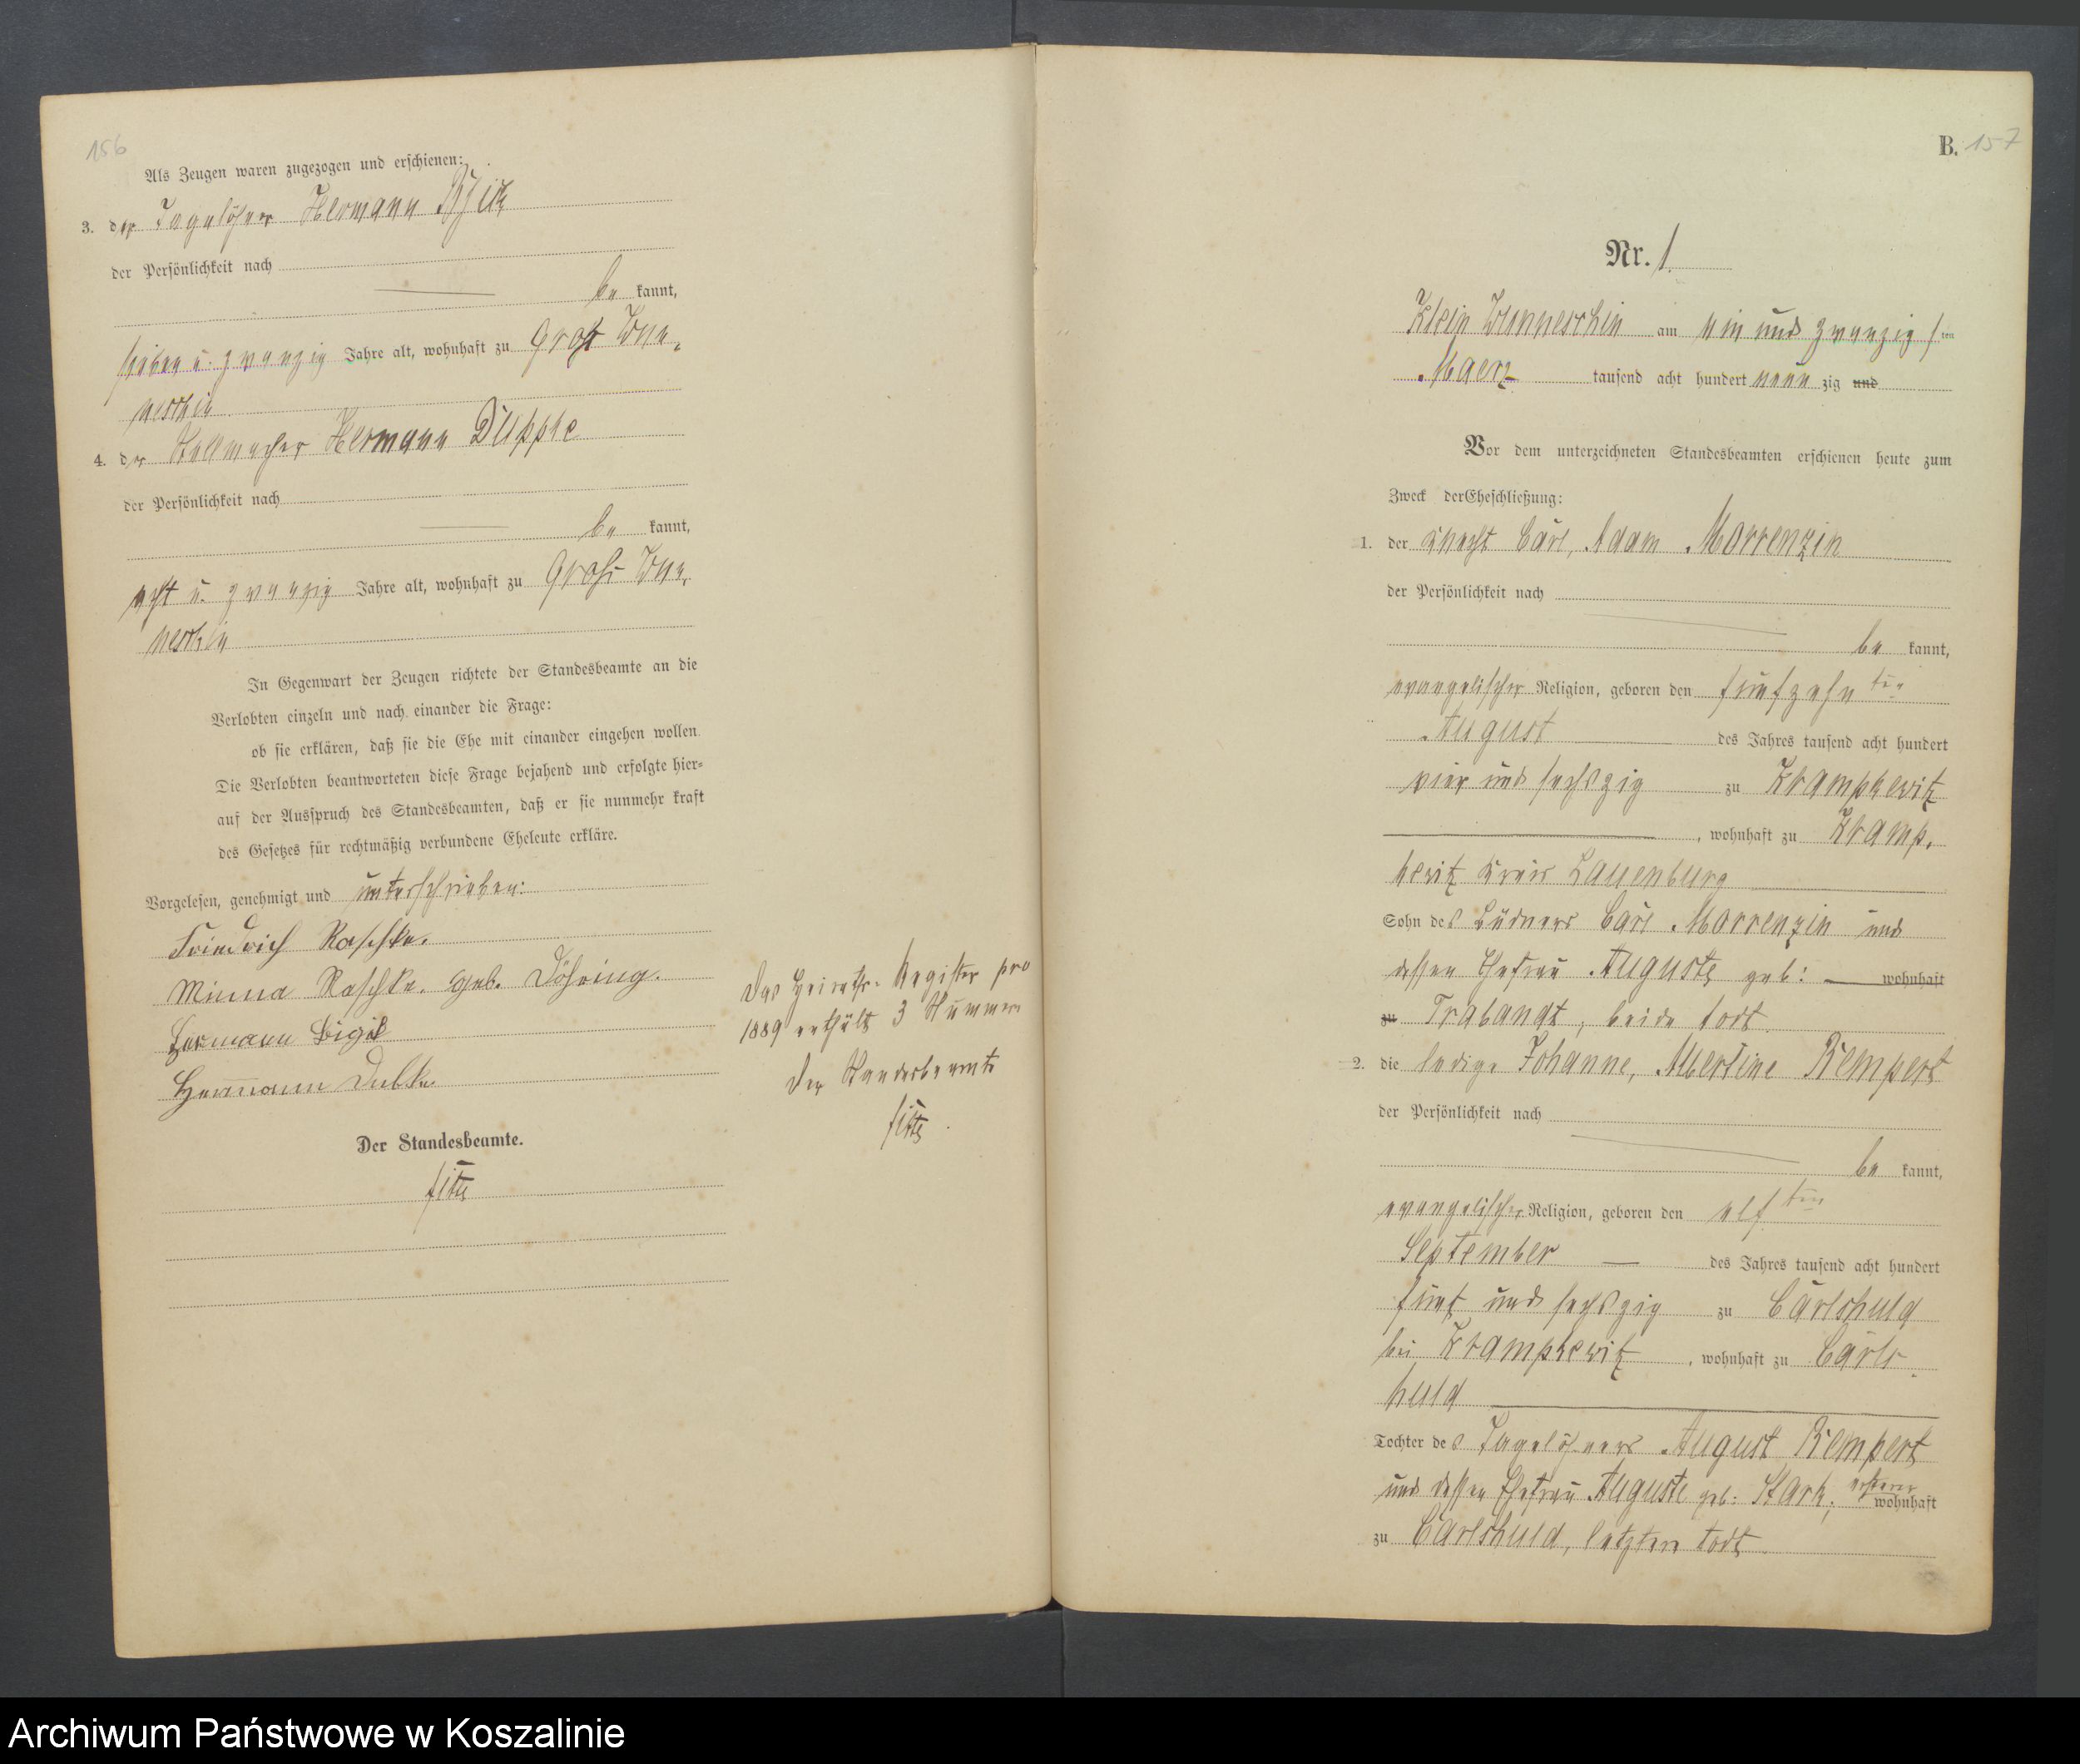 156
Als Zeugen waren zugezogen und erschienen:
3. der Tagelöhner Hermann
der Persönlichkeit nach
be kannt,
sieben u. zwanzig Jahre alt, wohnhaft zu Groß Wun-
neschin
4. der Stellmacher Hermann Duppke
der Persönlichkeit nach
be kannt,
acht u. zwanzig Jahre alt, wohnhaft zu Groß Wun-
neschin
In Gegenwart der Zeugen richtete der Standesbeamte an die
Verlobten einzeln und nach einander die Frage:
ob sie erklären, daß sie die Ehe mit einander eingehen wollen
Die Verlobten beantworteten diese Frage bejahend und erfolgte hier=
auf der Ausspruch des Standesbeamten, daß er sie nunmehr kraft
des Gesetzes für rechtmäßig verbundene Eheleute erkläre.
Vorgelesen, genehmigt und unterschrieben:
Friedrich Raschke.
Minna Raschke. geb. Döhring.
Hermann
Hermann
Der Standesbeamte.
Das Heiraths-Register pro
1889 enthält 3 Nummern
Der Standesbeamte
B. 157
Nr. 1.
Klein Wunneschin am ein und zwanzigsten
Maerz tausend acht hundert neun zig und
Vor dem unterzeichneten Standesbeamten erschienen heute zum
Zweck der Eheschließung:
1. der Knecht Carl, Adam Morrenzin
der Persönlichkeit nach
be kannt,
evangelischer Religion, geboren den fünfzehn ten
August des Jahres tausend acht hundert
vier und sechszig zu Krampkewitz
, wohnhaft zu Kramp-
kewitz Kreis Lauenburg
Sohn des Büdners Carl Morrenzin und
dessen Ehefrau Auguste geb: wohnhaft
zu Trabandt, beide todt.
2. die ledige Johanne, Albertine Rempert
der Persönlichkeit nach
be kannt,
evangelischer Religion, geboren den elf ten
September des Jahres tausend acht hundert
fünf und sechszig zu Carlshuld
bei Krampkewitz, wohnhaft zu Carls-
huld
Tochter des Tagelöhners August Rempert
und dessen Ehefrau Auguste geb: Stark, ersterer wohnhaft
zu Carlshuld, letztere todt.
Archiwum Państwowe w Koszalinie